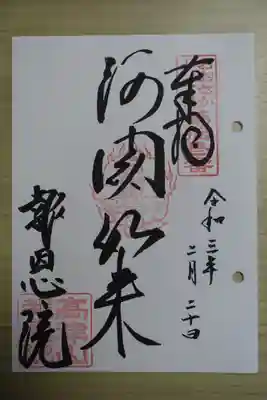 奉拝
阿閦如来
令和三年
二月二十日
報恩院